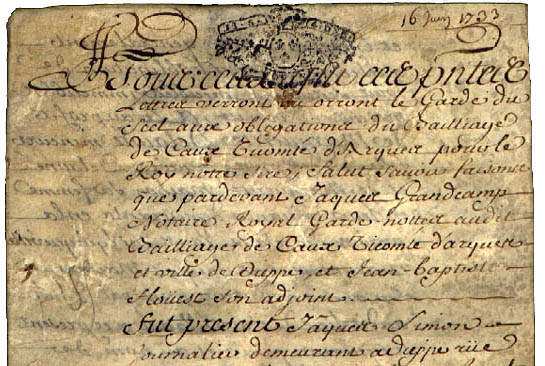 16 Juin 1733
A Tous ceux qui ces pntes
Lettres verront ou orront le Garde du
Scel aux obligations du Bailliage
de Caux Vicomté d'Arques pour le
Roy notre Sire, Salut Savoir faisons
que pardevant Jaques Grandcamp
Notaire Royal Garde nottes audit
Bailliage de Caux Vicomté d'arques
et ville de Dieppe et Jean-Baptiste
son adjoint
fut present Jaques Simon
Journalier demeurant a Dieppe rüe